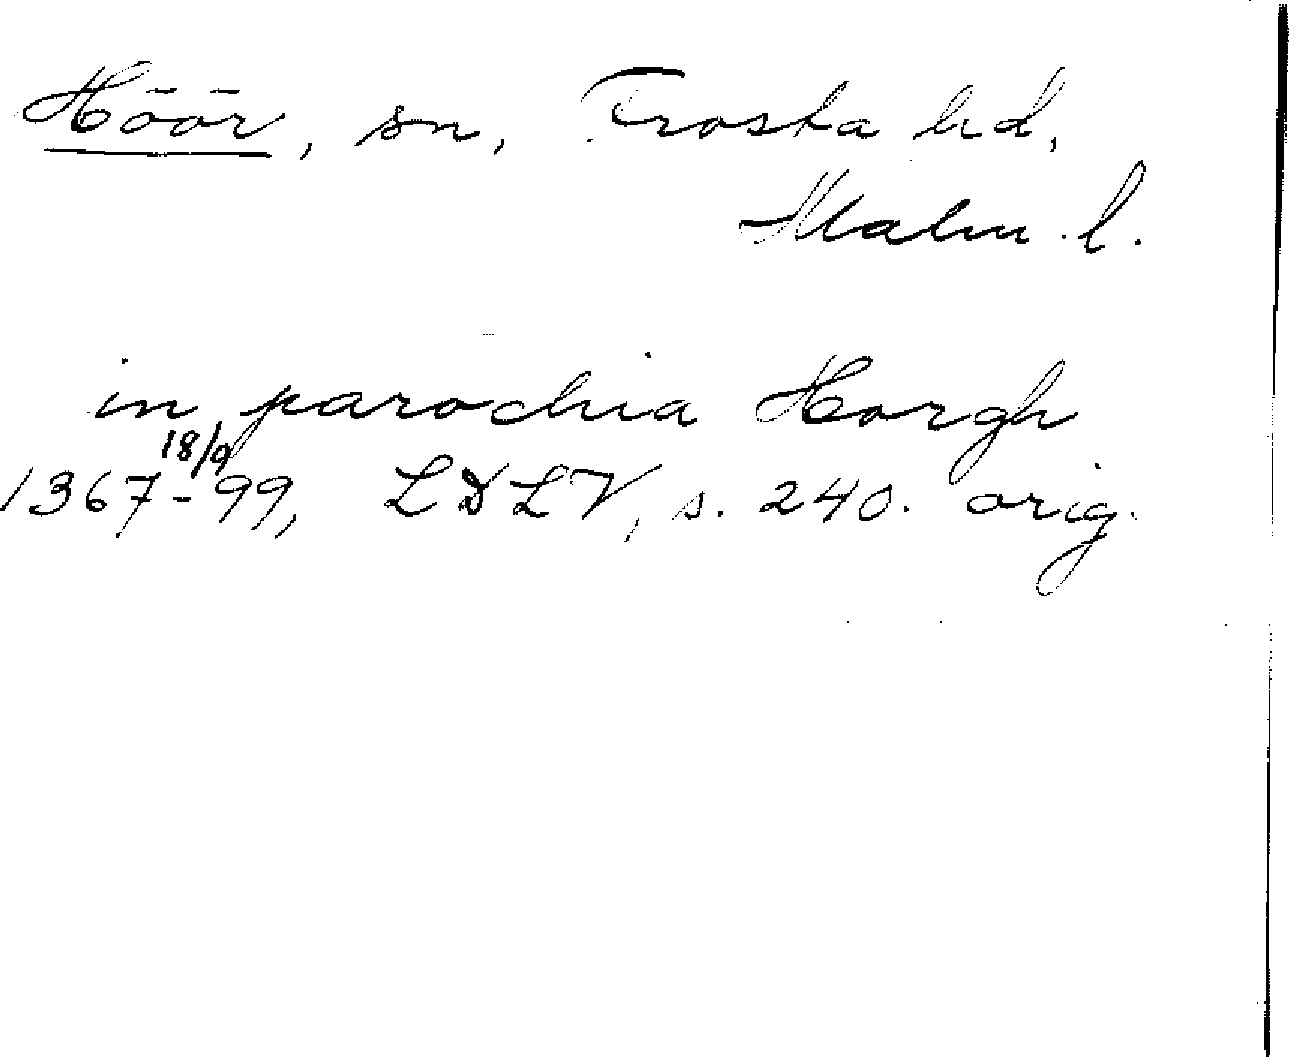 Höör, sn, Frosta hd,
Malm. l.
in parochia Horgh
18/9
1367-99, LDLV, s. 240. orig.